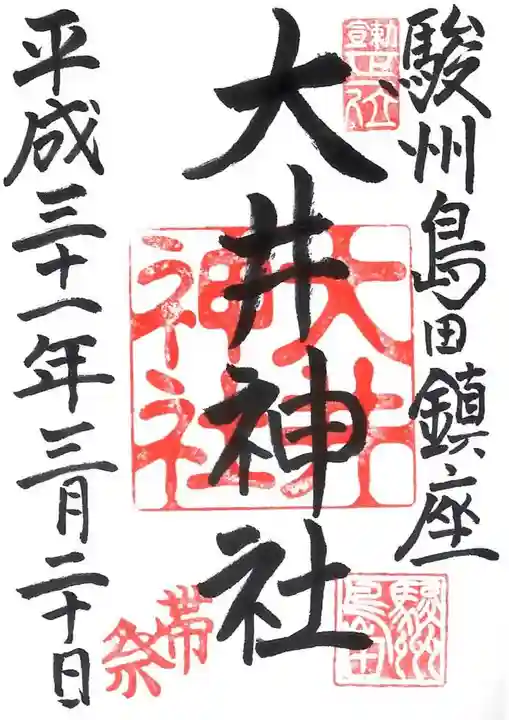 駿州島田鎮座
大井神社
平成三十一年三月二十日
大井
神社
帯祭
駿州
島田